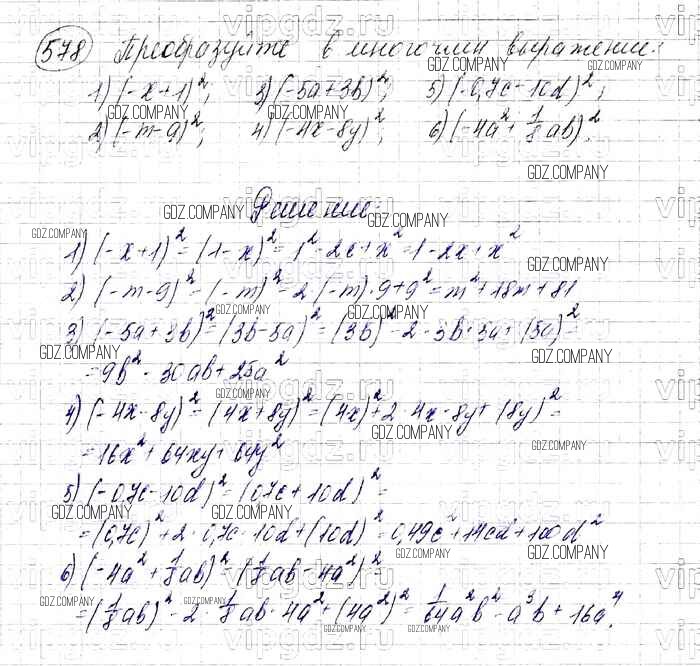 578 Преобразуйте в многочлен выражение:
1) (-x+1)²; 3) (-5a+3b)²; 5) (-0,7c-10d)²;
2) (-m-9)²; 4) (-4x-8y)²; 6) (-4a²+1/8ab)².
Решение:
1) (-x+1)² = (1-x)² = 1² - 2x + x² = 1 - 2x + x²
2) (-m-9)² = (-m)² = 2·(-m)·9+9² = m²+18m+81
3) (-5a+3b)² = (3b-5a)² = (3b)² - 2·3b·5a + (5a)² =
= 9b² - 30ab + 25a²
4) (-4x-8y)² = (4x+8y)² = (4x)² + 2·4x·8y + (8y)² =
= 16x² + 64xy + 64y²
5) (-0,7c-10d)² = (0,7c+10d)² =
= (0,7c)² + 2·0,7c·10d + (10d)² = 0,49c² + 14cd + 100d²
6) (-4a²+1/8ab)² = (1/8ab-4a²)² =
= (1/8ab)² - 2·1/8ab·4a² + (4a²)² = 1/64a²b² - a³b + 16a⁴.
GDZ.COMPANY
vipgdz.ru